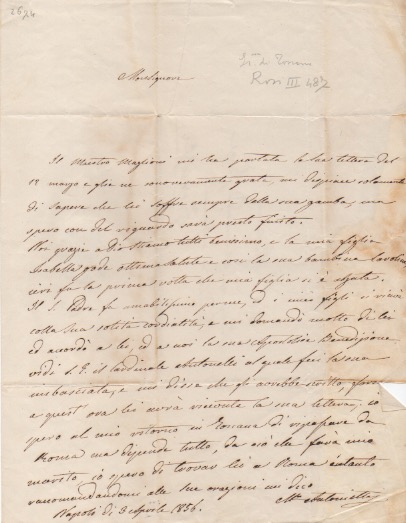 Monsignore
Il Maestro Maglioni mi ha portata la sua lettera del
17 marzo e glie ne sono veramente grata, mi dispiace solamente
di sapere che lei soffre sempre della sua gamba, ma
spero con del riguardo sarà presto finito.
Noi grazie a Dio stiamo tutti benissimo, e la mia figlia
Isabella gode ottima salute e così la sua bambina
ieri fu la prima volta che mia figlia si è alzata.
Il S. Padre fu amabilissimo per me, ed i miei figli ci
colla sua solita cordialità, e mi domandò molto di lei
ed accordò a lei, ed a noi la sua Apostolica Benedizione,
vidi S. E. il Cardinale Antonelli al quale feci la sua
imbasciata, e mi disse che gli avrebbe scritto, forse
a quest' ora lei avrà ricevuta la sua lettera; io
spero al mio ritorno in Toscana di ripassare da
Roma ma dipende tutto, da ciò che farà mio
marito, io spero di trovar lei a Roma e intanto
raccomandandomi alle sue orazioni mi dico
Napoli di 3 Aprile 1856.
Antonietta